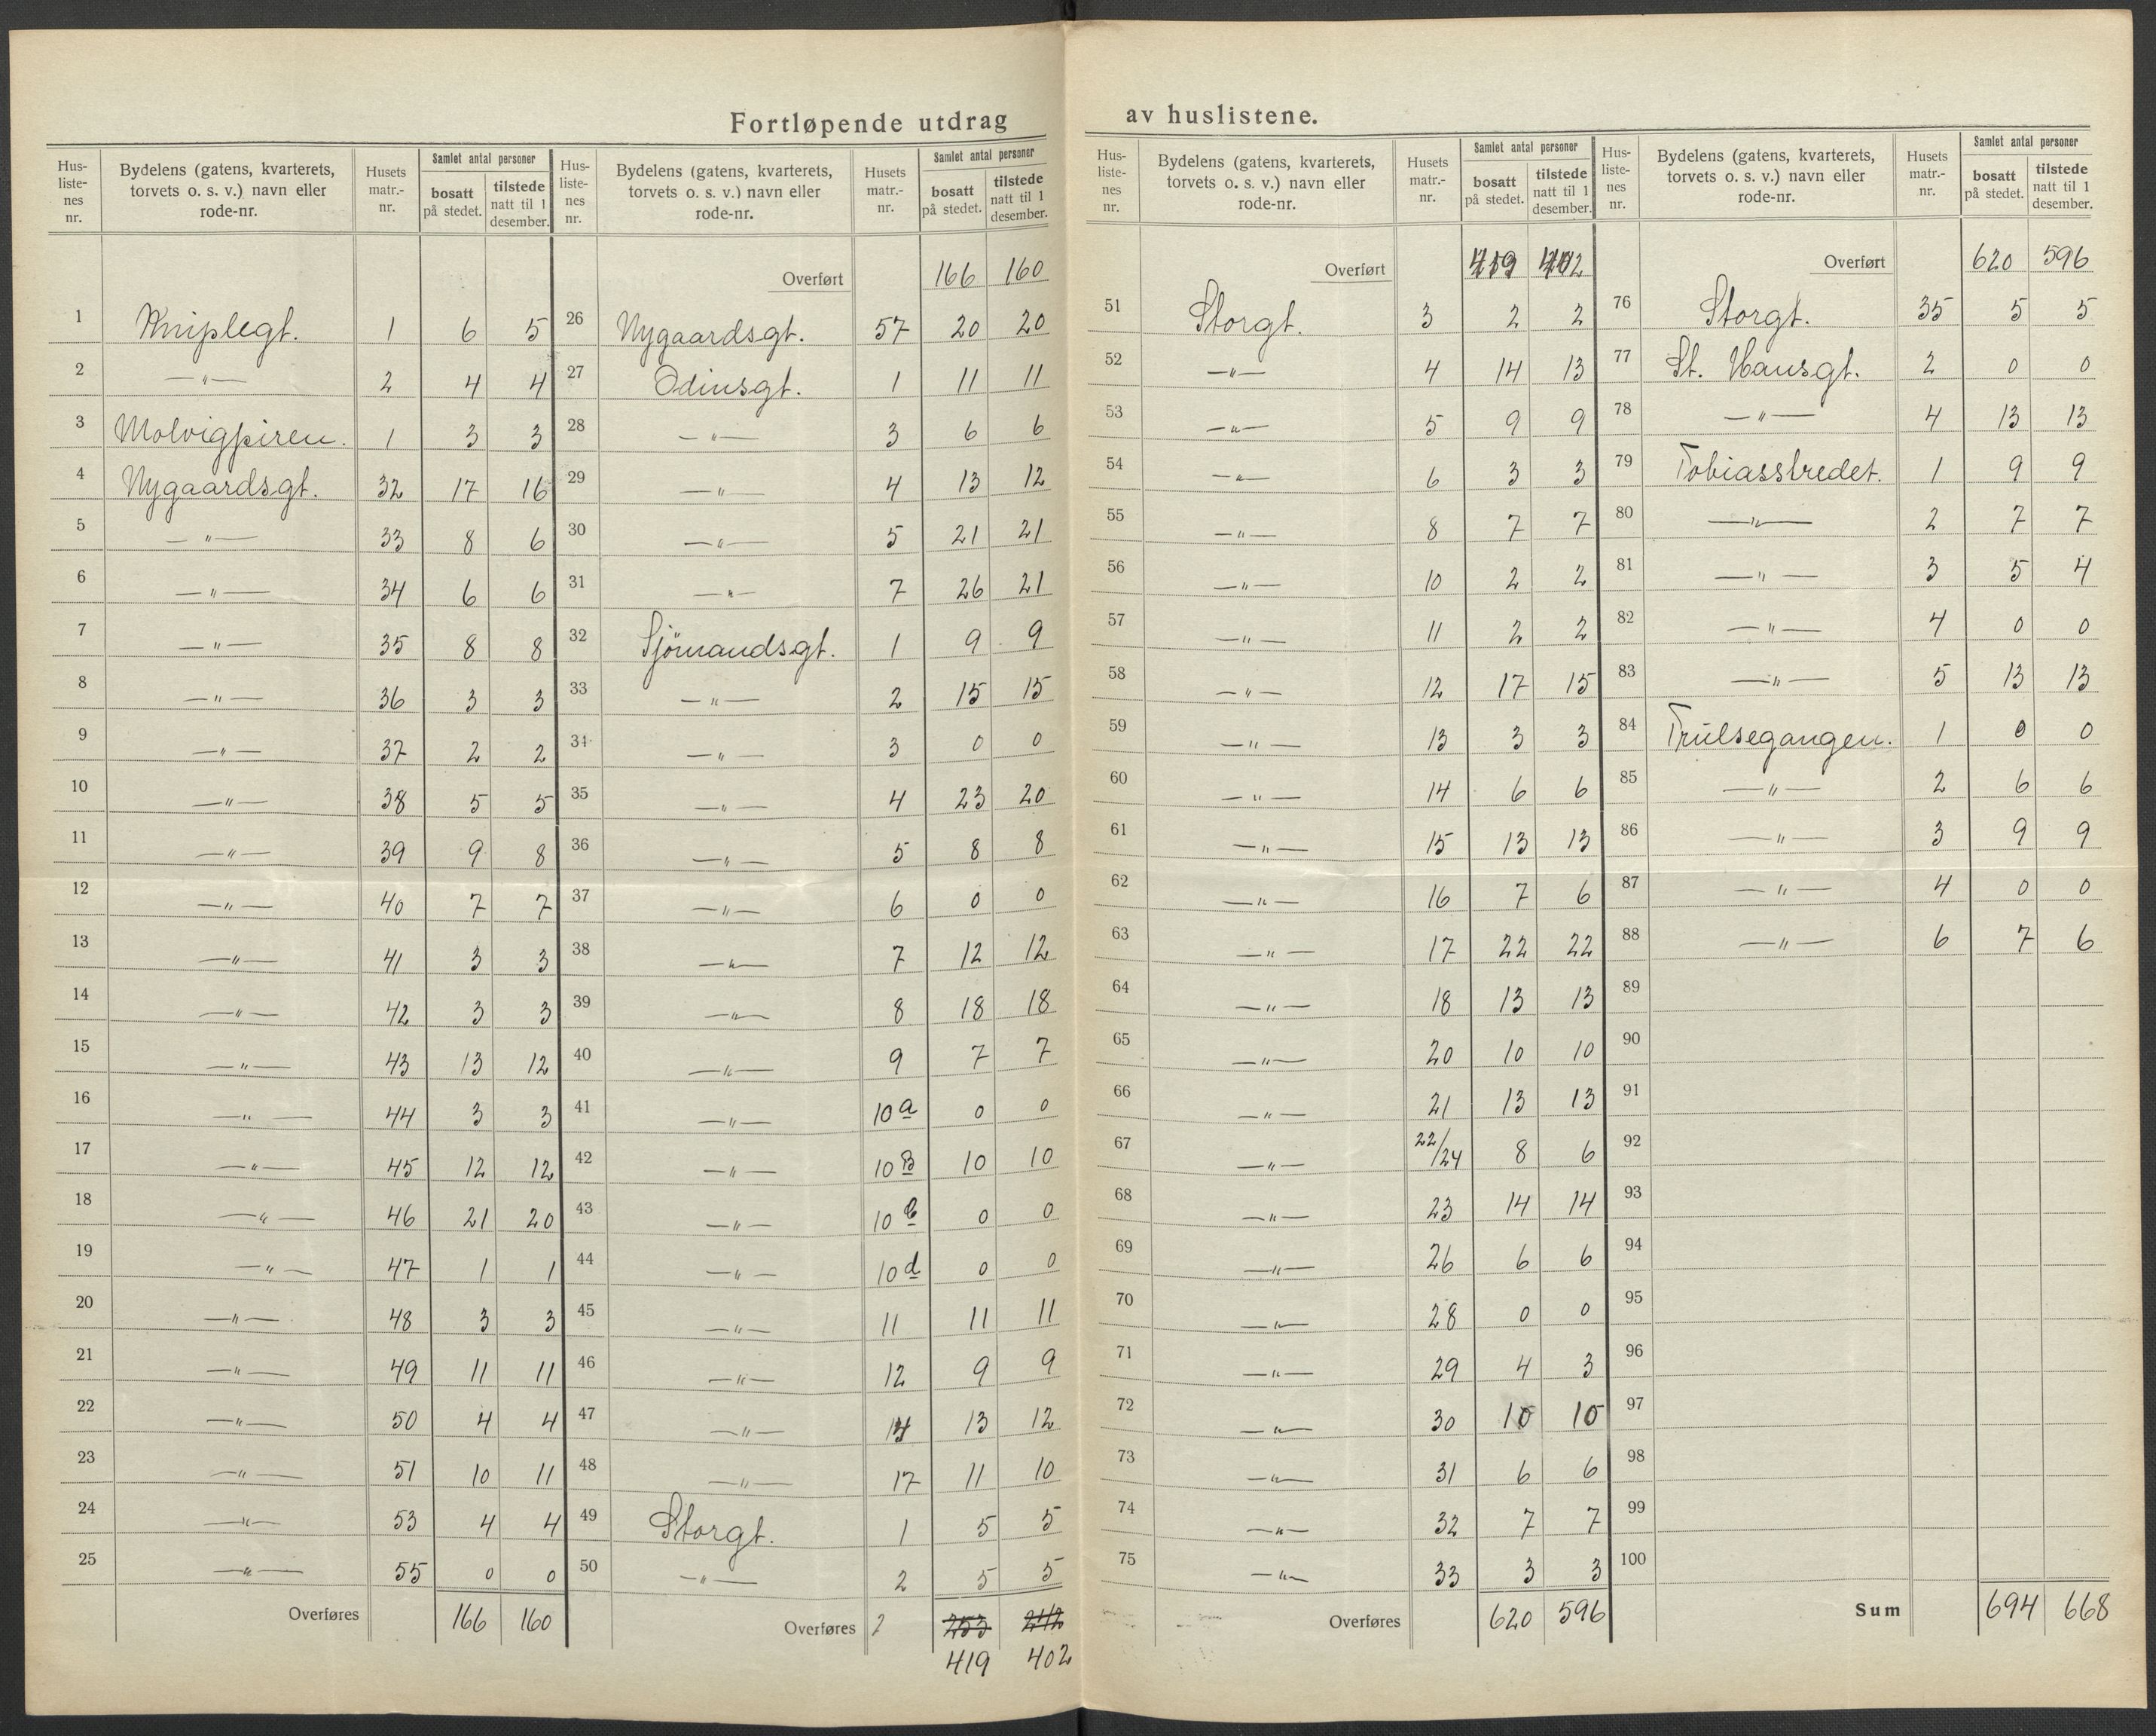 Fortløpende utdrag av huslistene.
Hus-listenes nr. | Bydelens (gatens, kvarterets, torvets o. s. v.) navn eller rode-nr. | Husets matr.-nr. | Samlet antal personer bosatt på stedet. | tilstede natt til 1 desember.
1 Kniplegt. 1 6 5
2 —"— 2 4 4
3 Molvigpiren. 1 3 3
4 Nygaardsgt. 32 17 16
5 —"— 33 8 6
6 —"— 34 6 6
7 —"— 35 8 8
8 —"— 36 3 3
9 —"— 37 2 2
10 —"— 38 5 5
11 —"— 39 9 8
12 —"— 40 7 7
13 —"— 41 3 3
14 —"— 42 3 3
15 —"— 43 13 12
16 —"— 44 3 3
17 —"— 45 12 12
18 —"— 46 21 20
19 —"— 47 1 1
20 —"— 48 3 3
21 —"— 49 11 11
22 —"— 50 4 4
23 —"— 51 10 11
24 —"— 53 4 4
25 —"— 55 0 0
Overføres 166 160
Hus-listenes nr. | Bydelens (gatens, kvarterets, torvets o. s. v.) navn eller rode-nr. | Husets matr.-nr. | Samlet antal personer bosatt på stedet. | tilstede natt til 1 desember.
Overført 166 160
26 Nygaardsgt. 57 20 20
27 Odinsgt. 1 11 11
28 —"— 3 6 6
29 —"— 4 13 12
30 —"— 5 21 21
31 —"— 7 26 21
32 Sjömandsgt. 1 9 9
33 —"— 2 15 15
34 —"— 3 0 0
35 —"— 4 23 20
36 —"— 5 8 8
37 —"— 6 0 0
38 —"— 7 12 12
39 —"— 8 18 18
40 —"— 9 7 7
41 —"— 10a 0 0
42 —"— 10B 10 10
43 —"— 10 0 0
44 —"— 10d 0 0
45 —"— 11 11 11
46 —"— 12 9 9
47 —"— 14 13 12
48 —"— 17 11 10
49 Storgt. 1 5 5
50 —"— 2 5 5
Overføres 2 253 242
419 402
Hus-listenes nr. | Bydelens (gatens, kvarterets, torvets o. s. v.) navn eller rode-nr. | Husets matr.-nr. | Samlet antal personer bosatt på stedet. | tilstede natt til 1 desember.
Overført 419 402
51 Storgt. 3 2 2
52 —"— 4 14 13
53 —"— 5 9 9
54 —"— 6 3 3
55 —"— 8 7 7
56 —"— 10 2 2
57 —"— 11 2 2
58 —"— 12 17 15
59 —"— 13 3 3
60 —"— 14 6 6
61 —"— 15 13 13
62 —"— 16 7 6
63 —"— 17 22 22
64 —"— 18 13 13
65 —"— 20 10 10
66 —"— 21 13 13
67 —"— 22/24 8 6
68 —"— 23 14 14
69 —"— 26 6 6
70 —"— 28 0 0
71 —"— 29 4 3
72 —"— 30 10 10
73 —"— 31 6 6
74 —"— 32 7 7
75 —"— 33 3 3
Overføres 620 596
Hus-listenes nr. | Bydelens (gatens, kvarterets, torvets o. s. v.) navn eller rode-nr. | Husets matr.-nr. | Samlet antal personer bosatt på stedet. | tilstede natt til 1 desember.
Overført 620 596
76 Storgt. 35 5 5
77 St. Hansgt. 2 0 0
78 —"— 4 13 13
79 Tobiasstredet. 1 9 9
80 —"— 2 7 7
81 —"— 3 5 4
82 —"— 4 0 0
83 —"— 5 13 13
84 Trulsegangen. 1 0 0
85 —"— 2 6 6
86 —"— 3 9 9
87 —"— 4 0 0
88 —"— 6 7 6
89
90
91
92
93
94
95
96
97
98
99
100
Sum 694 668